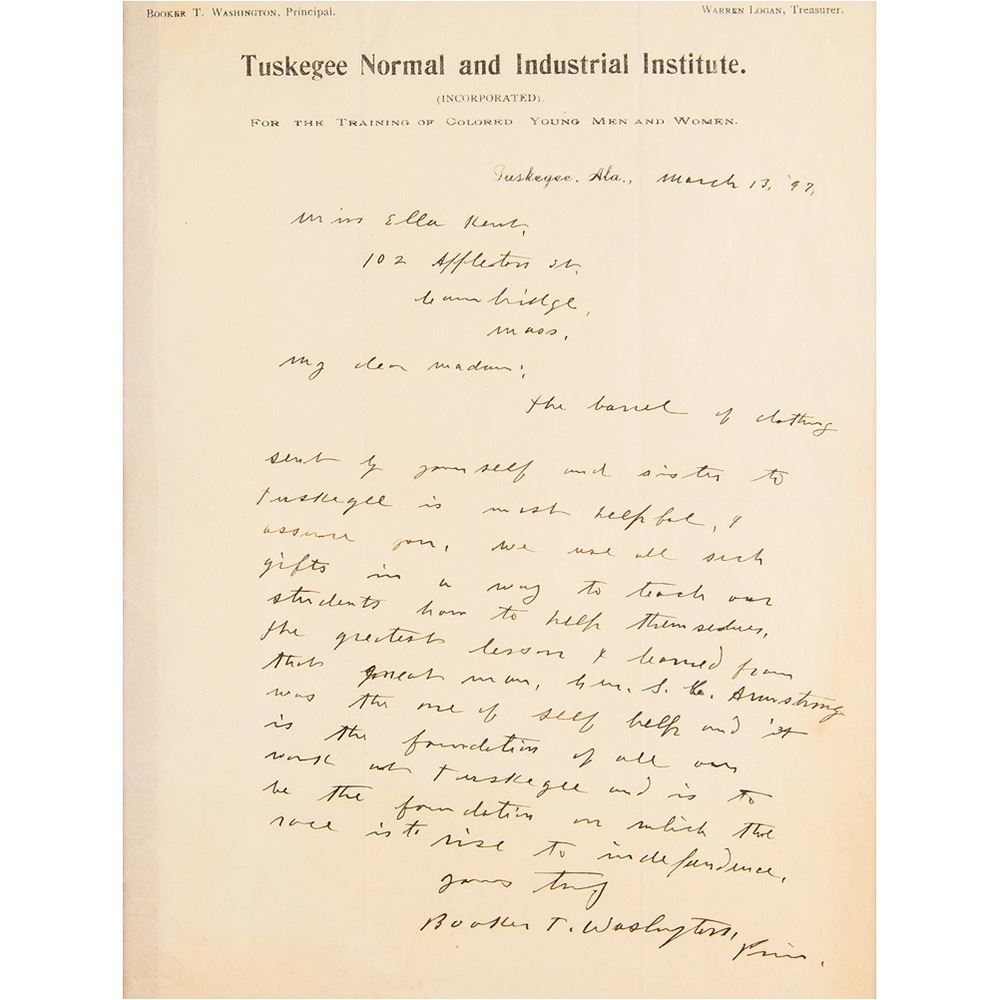 BOOKER T. WASHINGTON, Principal.
WARREN LOGAN, Treasurer.
Tuskegee Normal and Industrial Institute.
(INCORPORATED).
FOR THE TRAINING OF COLORED YOUNG MEN AND WOMEN.
Tuskegee. Ala., March 13, '97,
Miss Ella Kent,
102 Appleton St.
Cambridge,
Mass.
My dear madam:
The barrel of clothing
sent by yourself and sister to
Tuskegee is most helpful, I
assure you. We use all such
gifts in a way to teach our
students how to help themselves.
The greatest lesson I learned from
that great man, Gen. S. C. Armstrong
was the one of self help and it
is the foundation of all our
work at Tuskegee and is to
be the foundation on which the
race is to rise to independence.
Yours truly
Booker T. Washington,
Prin.